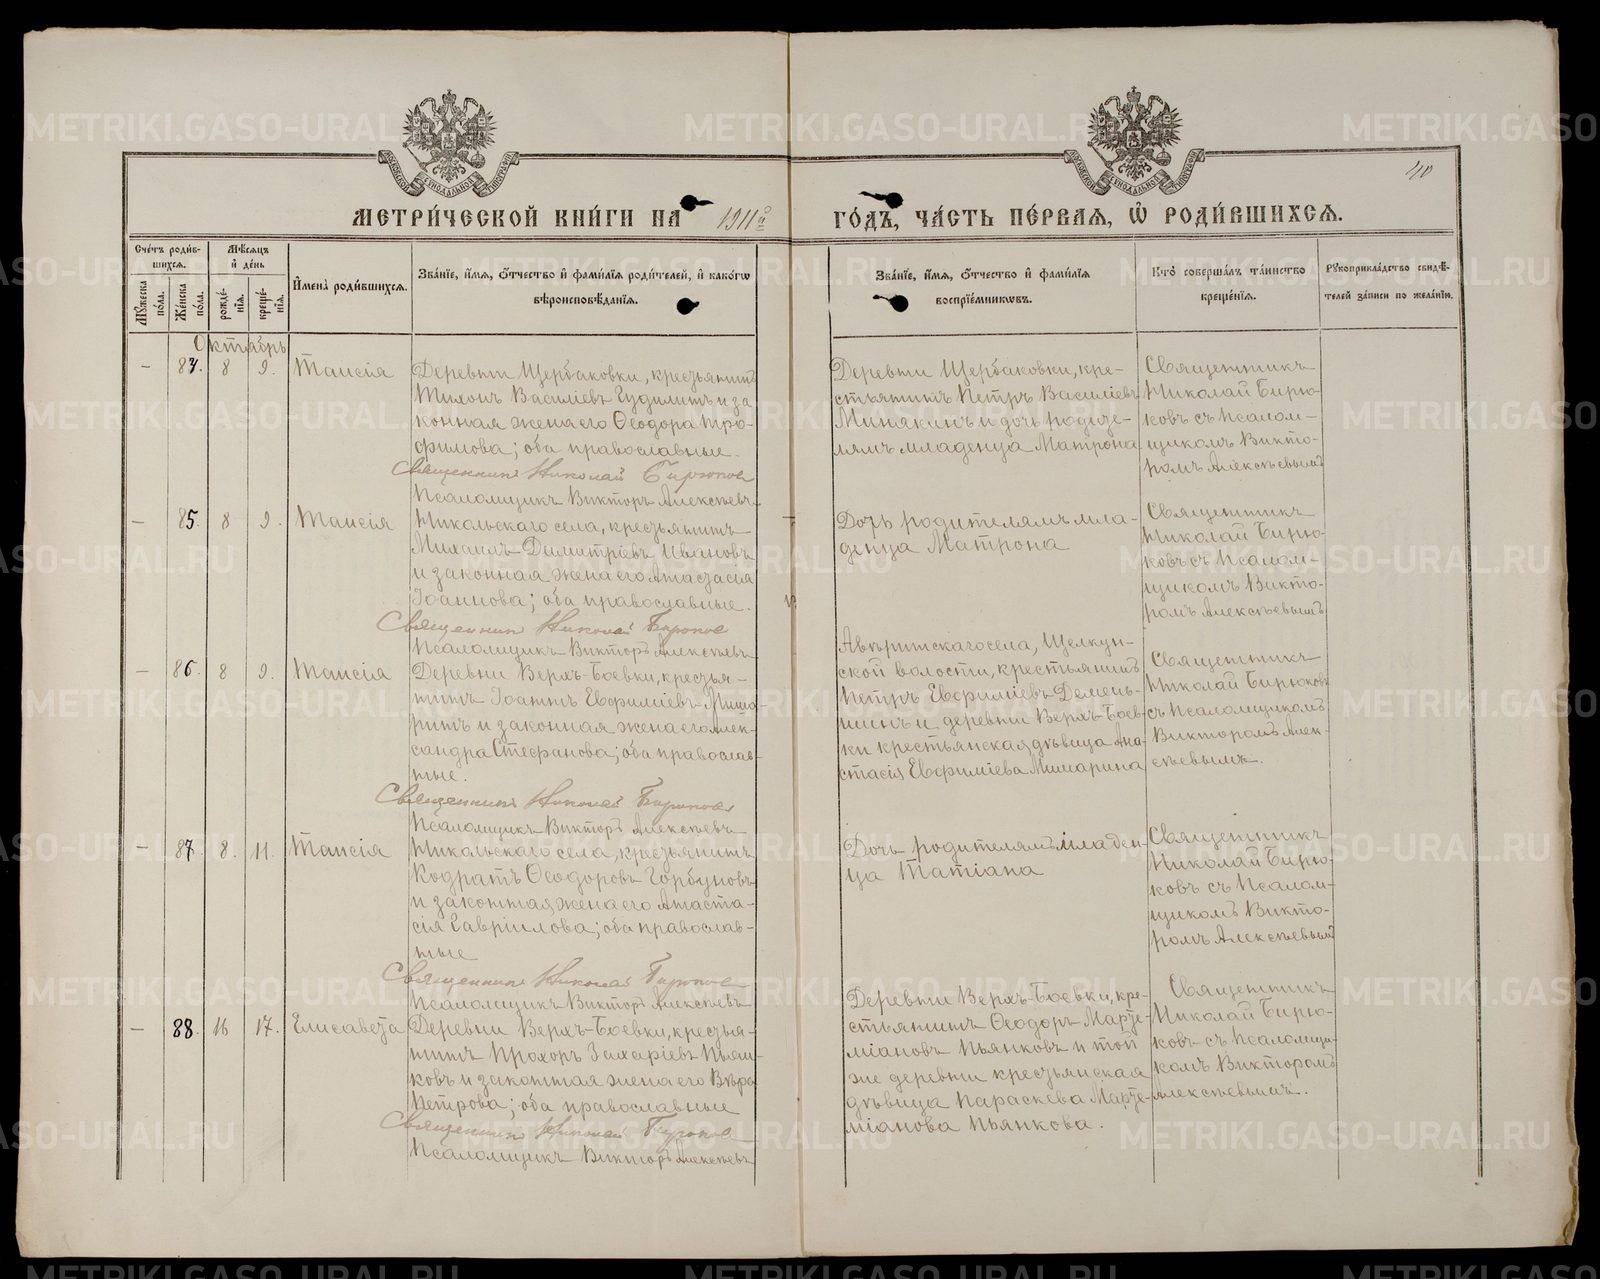 METRIKI.GASO-URAL.RU
40
МЕТРИ́ЧЕСКОЙ КНИ́ГИ НА 1911й ГО́ДЪ, ЧА́СТЬ ПЕ́РВАЯ, Ѽ РОДИ́ВШИХСѦ.
Сче́тъ роди́вшихсѧ.
Му́жеска по́ла.
Же́нска по́ла.
Мѣ́сѧцъ и҆ де́нь
рожде́нїѧ.
креще́нїѧ.
И҆мена̀ роди́вшихсѧ.
Зва́нїе, и҆́мѧ, ѻ҆́тчество и҆ фами́лїѧ роди́телей, и҆ како́гѡ
вѣроисповѣ́данїѧ.
Зва́нїе, и҆́мѧ, ѻ҆́тчество и҆ фами́лїѧ
воспрїе́мникѡвъ.
Кто̀ соверша́лъ та́инство
креще́нїѧ.
Рꙋкоприкла́дство свидѣ́-
телей за́писи по жела́нїю.
Октябрь
– 84. 8 9. Таисія
Деревни Щербаковки, крестьянинъ
Тихонъ Василіевъ Гудилинъ и за
конная жена его Ѳеодора Тро-
фимова; оба православные.
Священникъ Николай Бирюковъ
Псаломщикъ Викторъ Алексѣевъ
Деревни Щербаковки, кре-
стьянинъ Петръ Василіевъ
Минякинъ и дочь родите-
лямъ младенца Матрона
Священникъ
Николай Бирю-
ковъ съ Псалом-
щикомъ Викто-
ромъ Алексѣевымъ
– 85. 8 9. Таисія
Никольскаго села, крестьянинъ
Михаилъ Димитріевъ Ивановъ
и законная жена его Анастасія
Іоаннова; оба православные.
Священникъ Николай Бирюковъ
Псаломщикъ Викторъ Алексѣевъ
Дочь родителямъ мла-
денца Матрона
Священникъ
Николай Бирю-
ковъ съ Псалом-
щикомъ Викто-
ромъ Алексѣевымъ
– 86. 8 9. Таисія
Деревни Верхъ-Боевки, кресть-
янинъ Іоаннъ Евфиміевъ Мина-
ринъ и законная жена его Алек-
сандра Стефанова; оба православ-
ные.
Священникъ Николай Бирюковъ
Псаломщикъ Викторъ Алексѣевъ
села, Щелкун-
ской волости, крестьянинъ
Петръ Евфиміевъ Демень-
шинъ и деревни Верхъ-Боев-
ки крестьянская дѣвица Ана-
стасія Евфиміева Минарина
Священникъ
Николай Бирюковъ
съ Псаломщикомъ
Викторомъ Алек-
сѣевымъ.
– 87. 8. 11. Таисія
Никольскаго села, крестьянинъ
Кодратъ Ѳеодоровъ Горбуновъ
и законная жена его Анаста-
сія Гавріилова; оба православ-
ные
Священникъ Николай Бирюковъ
Псаломщикъ Викторъ Алексѣевъ
Дочь родителямъ младен-
ца Татіана
Священникъ
Николай Бирю-
ковъ съ Псалом-
щикомъ Викто-
ромъ Алексѣевымъ
– 88. 16 17. Елисавета
Деревни Верхъ-Боевки, крестья-
нинъ Прохоръ Захаріевъ Пьян-
ковъ и законная жена его Вѣра
Петрова; оба православные
Священникъ Николай Бирюковъ
Псаломщикъ Викторъ Алексѣевъ
Деревни Верхъ-Боевки, кре-
стьянинъ Ѳеодоръ Марте-
міановъ Пьянковъ и той
же деревни крестьянская
дѣвица Параскева Марте-
міанова Пьянкова.
Священникъ
Николай Бирю-
ковъ съ Псаломщи-
комъ Викторомъ
Алексѣевымъ.